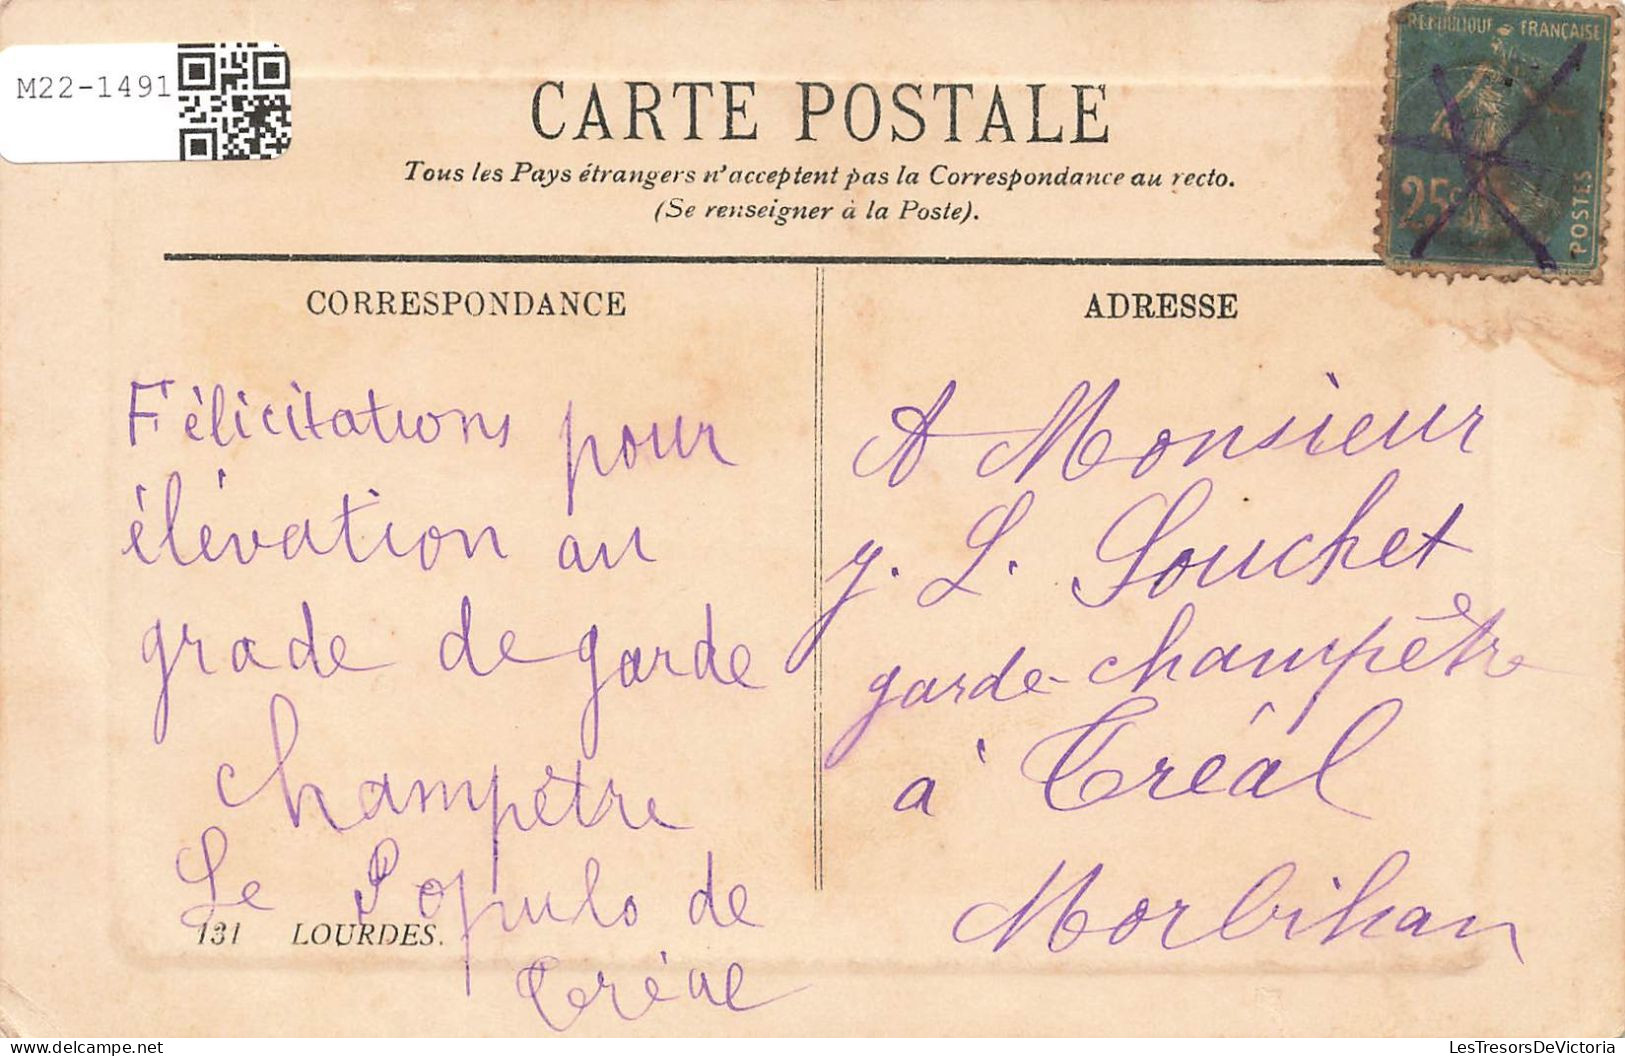 M22-1491
REPUBLIQUE FRANÇAISE
25c
POSTES
CARTE POSTALE
Tous les Pays étrangers n'acceptent pas la Correspondance au recto.
(Se renseigner à la Poste).
CORRESPONDANCE
Félicitations pour
élévation au
grade de garde
champêtre
Le Populo de
Tréal
131 LOURDES.
ADRESSE
A Monsieur
J. L. Souchet
garde-champêtre
à Tréal
Morbihan
LesTresorsDeVictoria